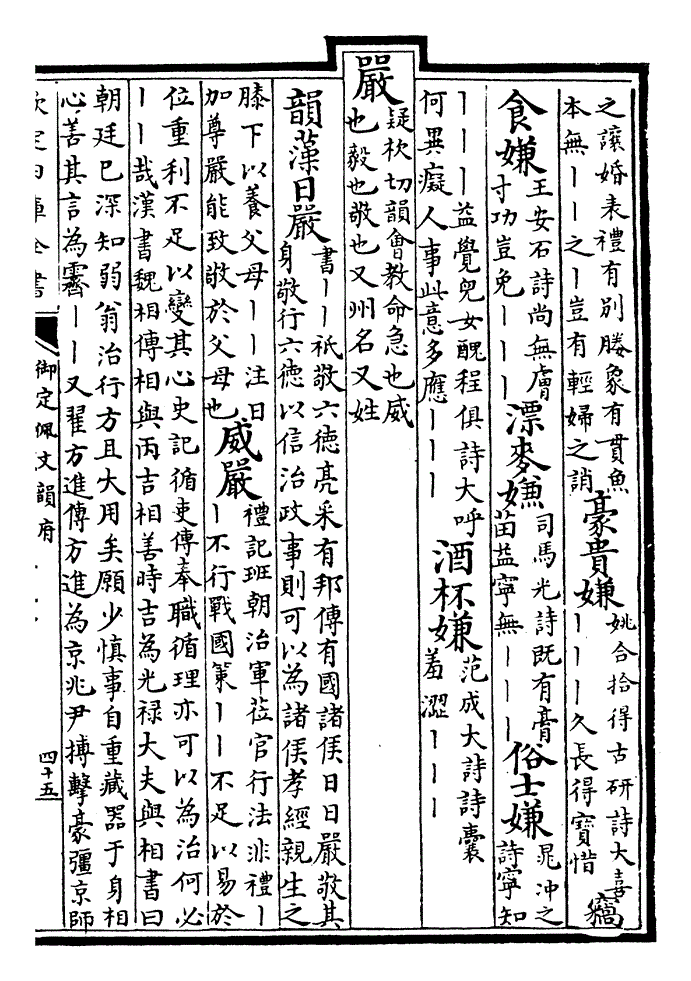 之讓婚表禮有別媵象有貫魚
本無丨丨之丨豈有輕婦之誚
豪貴嫌
姚合拾得古研詩大喜
丨丨丨久長得寶惜
竊
食嫌
王安石詩尚無膚
寸功豈免丨丨丨
漂麥嫌
司馬光詩既有膏
苗益寧無丨丨丨
俗士嫌
晁沖之
詩寧知
丨丨丨益覺兒女醜程俱詩大呼
何異癡人事此意多應丨丨丨
酒杯嫌
范成大詩詩囊
羞澀丨丨丨
嚴
疑杴切韻會教命急也威
也毅也敬也又州名又姓
韻藻日嚴
書丨丨祇敬六德亮采有邦傳有國諸侯日日嚴敬其
身敬行六德以信治政事則可以為諸侯孝經親生之
膝下以養父母丨丨注日
加尊嚴能致敬於父母也
威嚴
禮記班朝治軍蒞官行法非禮丨
丨不行戰國策丨丨不足以易於
位重利不足以變其心史記循吏傳奉職循理亦可以為治何必
丨丨哉漢書魏相傳相與丙吉相善時吉為光祿大夫與相書曰
朝廷已深知弱翁治行方且大用矣願少慎事自重藏器于身相
心善其言為霽丨丨又翟方進傳方進為京兆尹搏擊豪彊京師
欽定四庫全書
御定佩文韻府
四十五